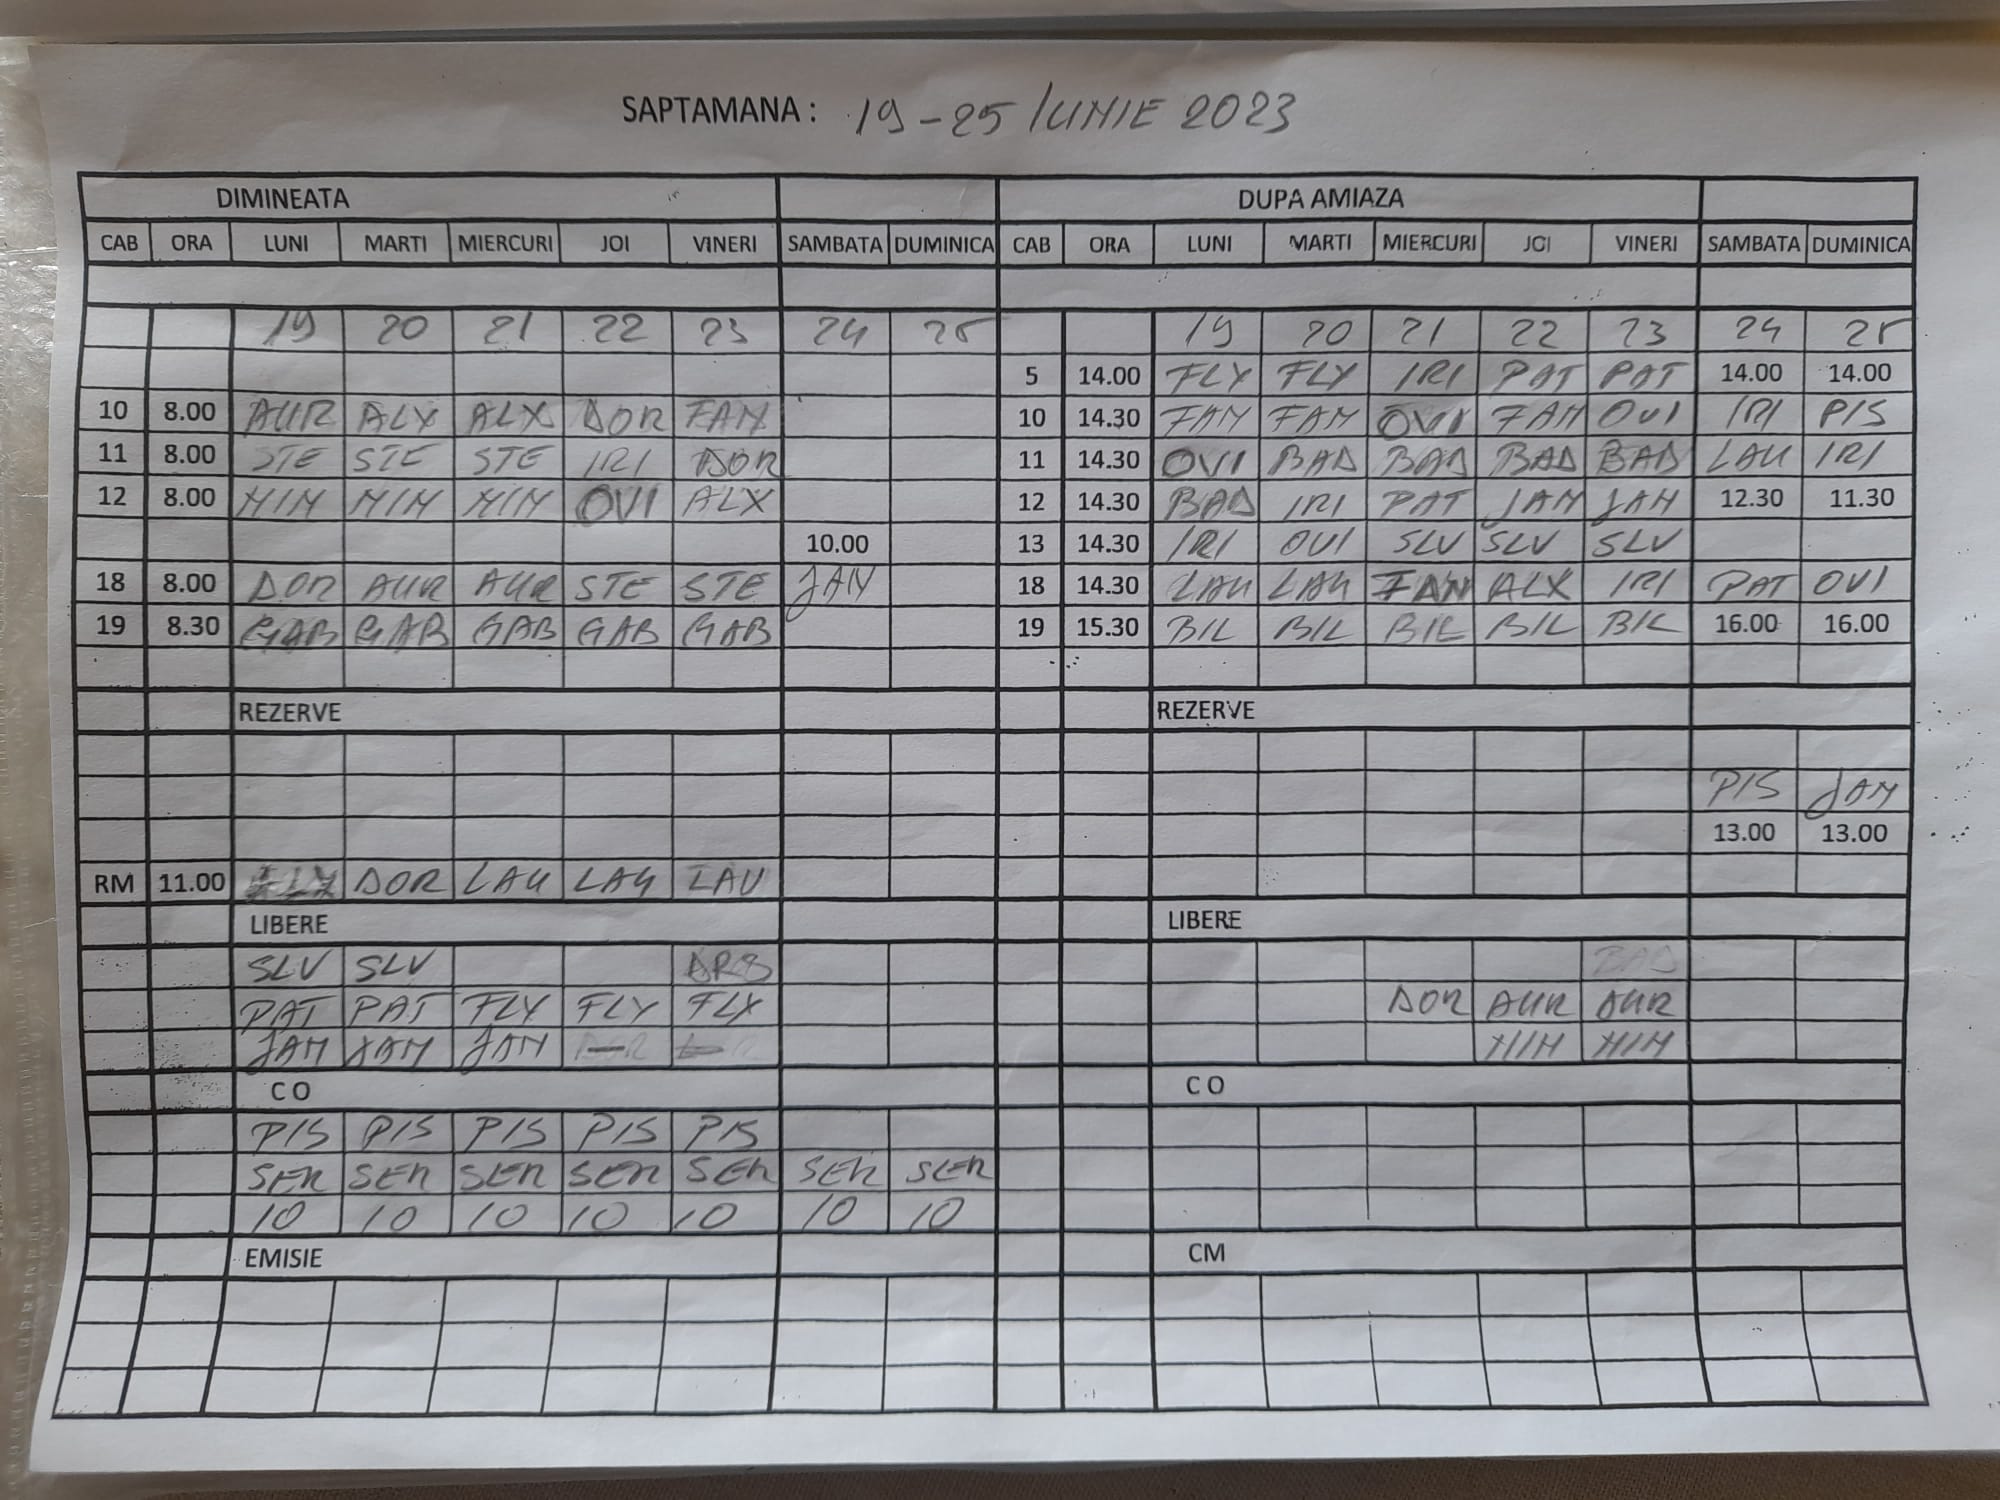 SAPTAMANA : 19-25 IUNIE 2023
DIMINEATA DUPA AMIAZA
CAB ORA LUNI MARTI MIERCURI JOI VINERI SAMBATA DUMINICA CAB ORA LUNI MARTI MIERCURI JOI VINERI SAMBATA DUMINICA
19 20 21 22 23 24 25 19 20 21 22 23 24 25
5 14.00 FLY FLY IRI PAT PAT 14.00 14.00
10 8.00 AUR ALX ALX DOR FAN 10 14.30 FAN FAN OVI FAN OVI IRI PIS
11 8.00 STE STE STE IRI DOR 11 14.30 OVI BAD BAD BAD BAD LAU IRI
12 8.00 MIM MIM MIM OVI ALX 12 14.30 BAD IRI PAT JAN JAN 12.30 11.30
10.00 13 14.30 IRI OVI SLV SLV SLV
18 8.00 DOR AUR AUR STE STE JAN 18 14.30 LAU LAU FAN ALX IRI PAT OVI
19 8.30 GAB GAB GAB GAB GAB 19 15.30 BIL BIL BIL BIL BIL 16.00 16.00
REZERVE REZERVE
PIS JAN
13.00 13.00
RM 11.00 DOR LAU LAU LAU
LIBERE LIBERE
SLV SLV BAD
PAT PAT FLY FLY FLY DOR AUR AUR
JAN JAN JAN MIM MIM
CO CO
PIS PIS PIS PIS PIS
SER SER SER SER SER SER SER
10 10 10 10 10 10 10
EMISIE CM